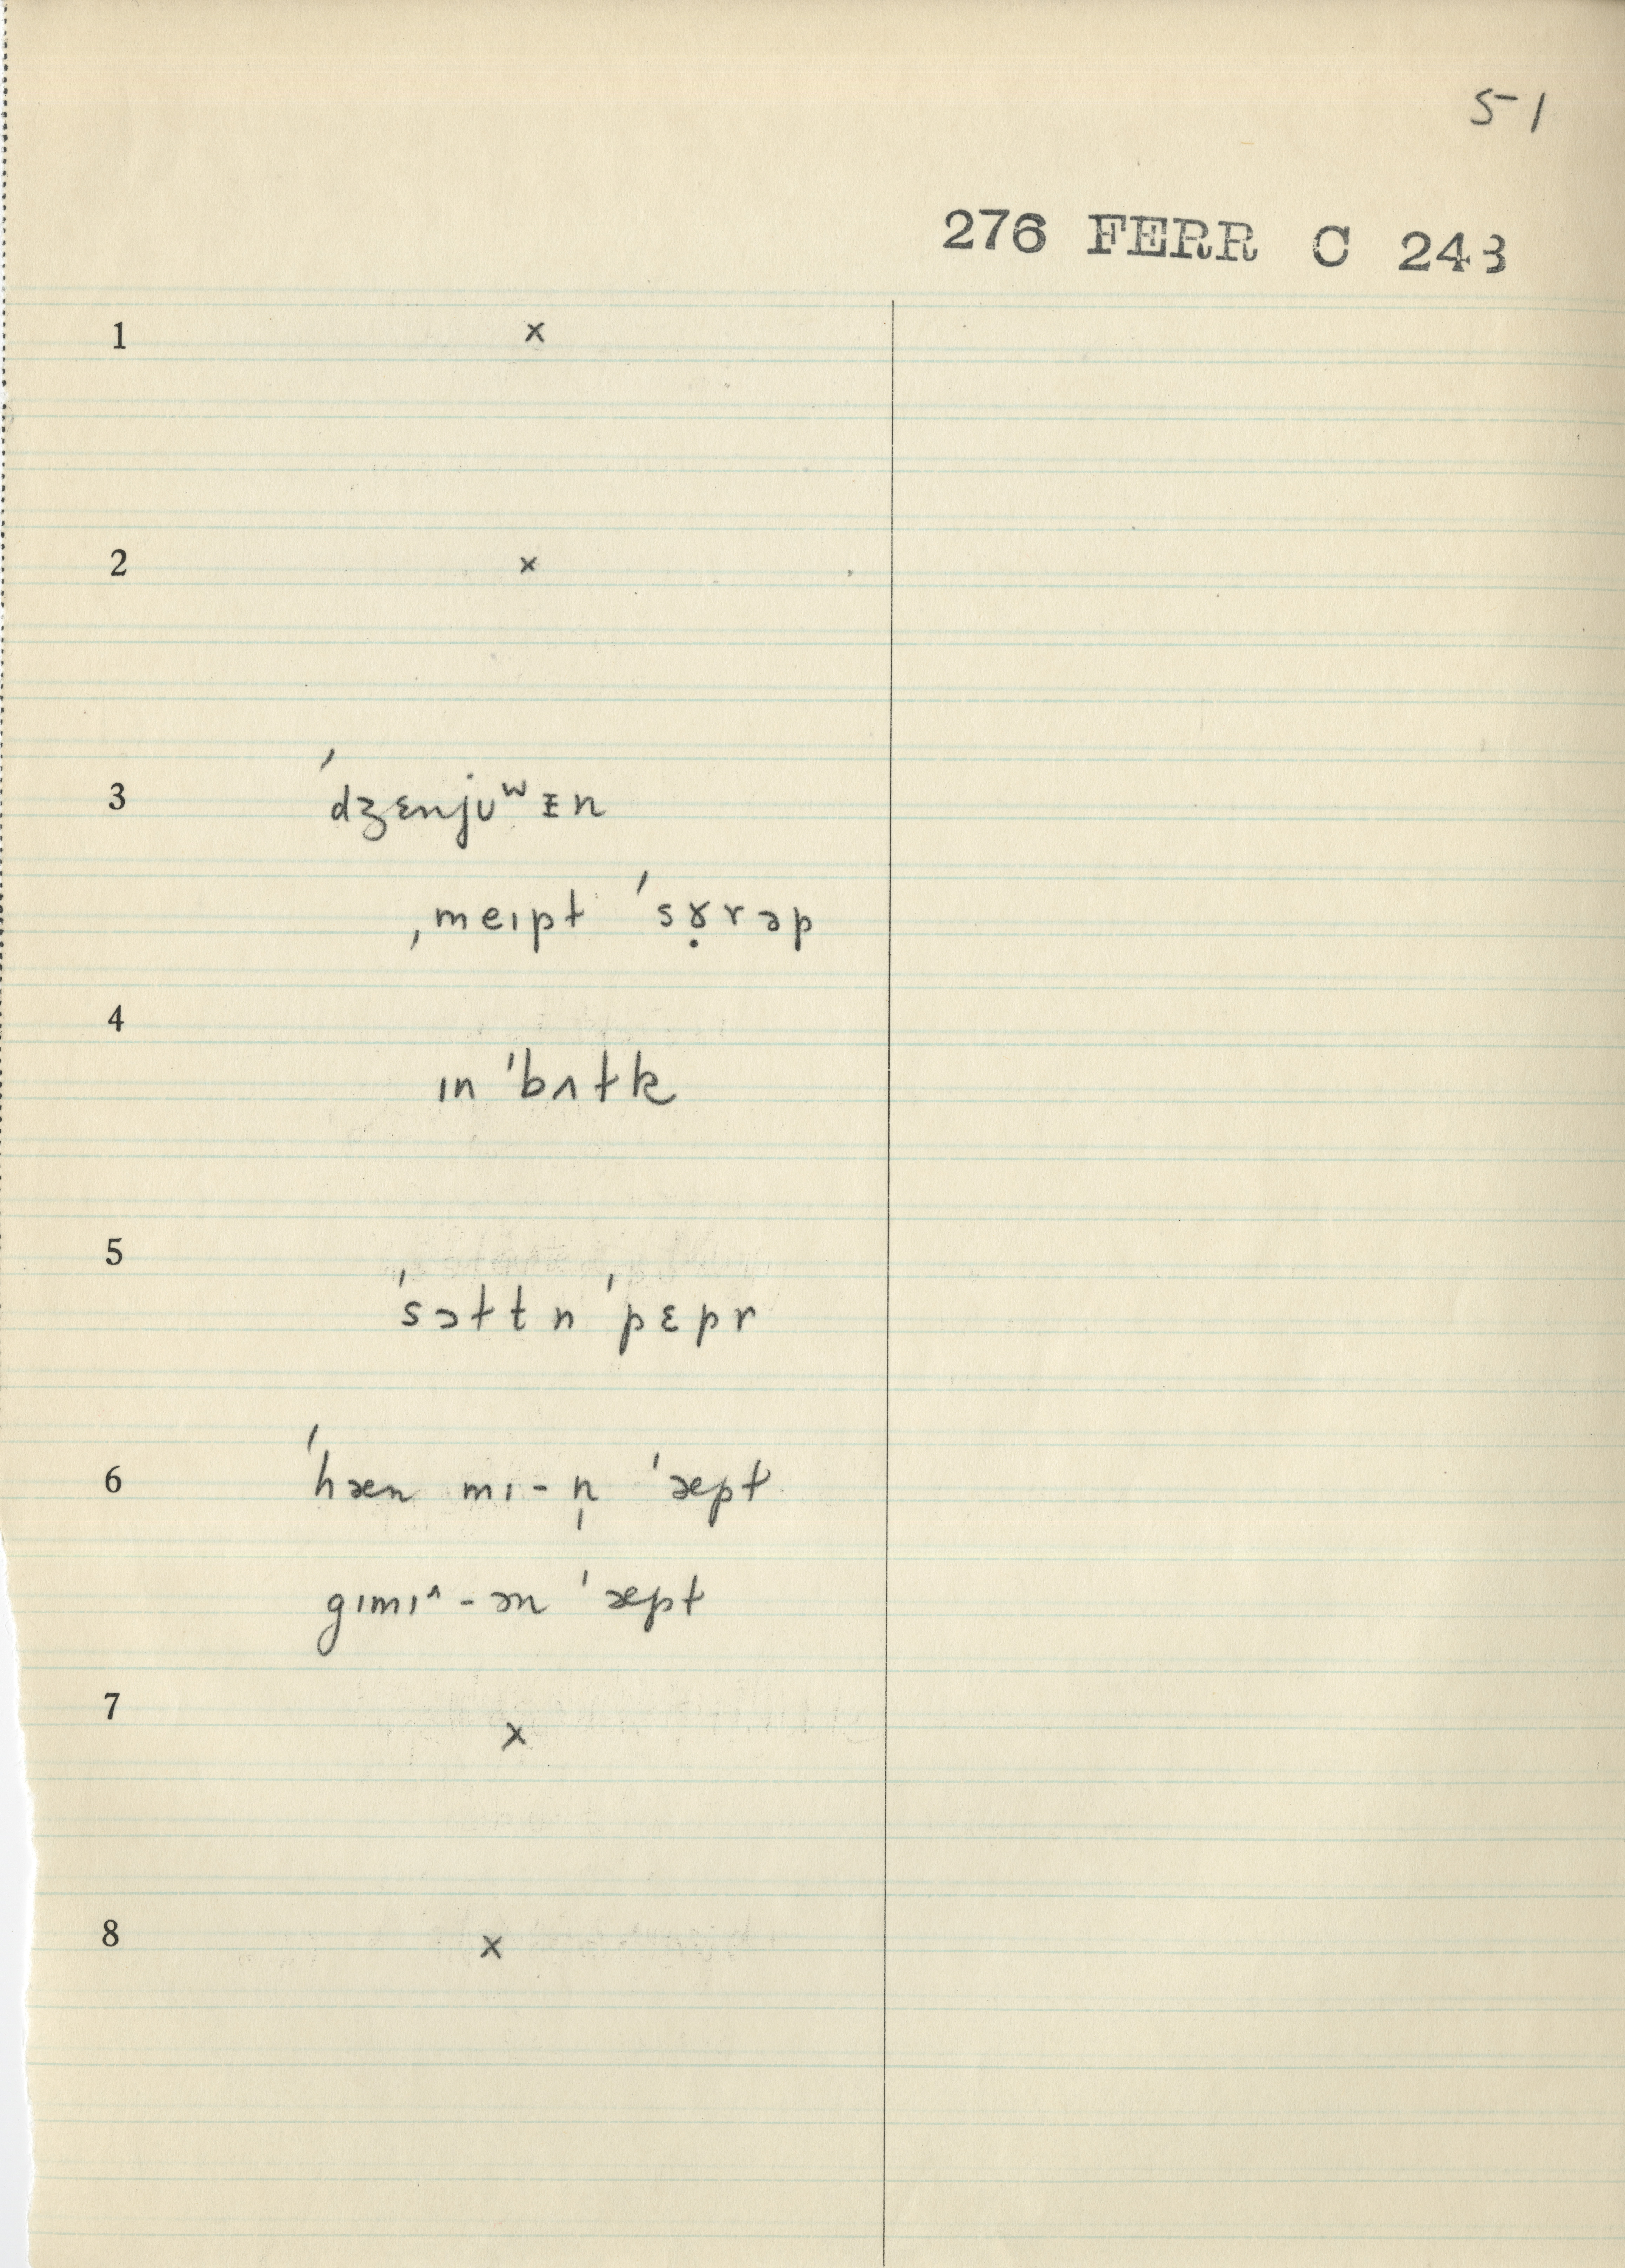 51
276 FERR C 243
1 x
2 x
3 ˈdʒɛnjʊʷᵻn
ˌmeɪpɫ ˈsɤ̣rəp
4
ɪn ˈbʌɫk
5
ˈsɔɫt n ˈpɛpr
6 ˈhæn mɪ-n̩ ˈæpɫ
gɪmɪ^-ən ˈæpɫ
7 x
8 x